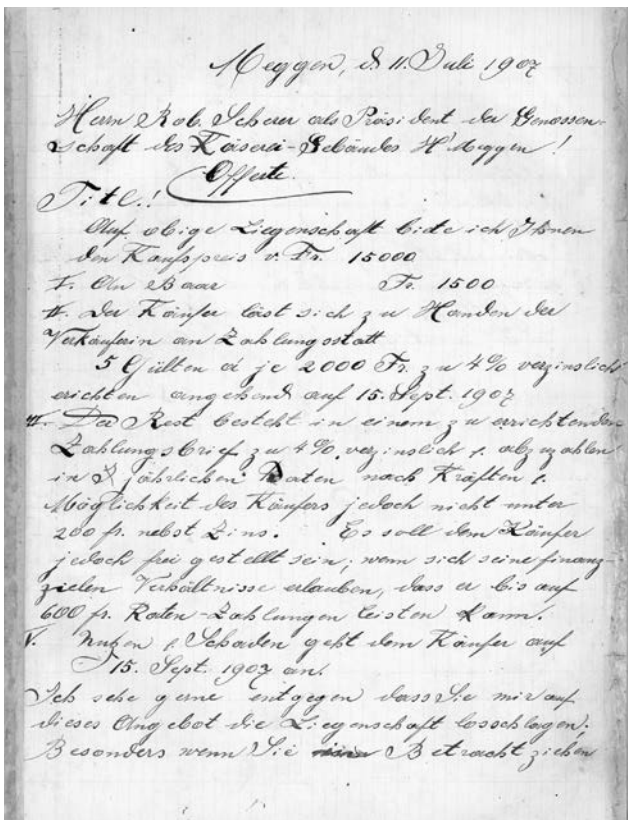 Meggen, d. 11. Juli 1907
Herrn Rob. Scherer als Präsident der Genossen-
schaft des Käserei-Gebäudes H' Meggen!
Offerte.
Titl.!
Auf obige Liegenschaft biete ich Ihnen
den Kaufspreis v. Fr. 15000
I. An Baar Fr. 1500
II. Der Käufer läst sich zu Handen der
Verkäuferin an Zahlungsstatt
5 Gülten à je 2000 Fr. zu 4% verzinslich
erichten angehend auf 15. Sept. 1907
III. Der Rest besteht in einem zu errichtenden
Zahlungsbrief zu 4%. verzinslich &. abzuzahlen
in jährlichen Raten nach Kräften &.
Möglichkeit des Käufers jedoch nicht unter
200 fr. nebst Zins. Es soll dem Käufer
jedoch frei gestellt sein, wenn sich seine finanz-
zielen Verhältnisse erlauben, dass er bis auf
600 fr. Raten-Zahlungen leisten kann.
V. Nutzen &. Schaden geht dem Käufer auf
15. Sept. 1907 an.
Ich sehe gerne entgegen dass Sie mir auf
dieses Angebot die Liegenschaft losschlagen;
Besonders wenn Sie Betracht ziehen